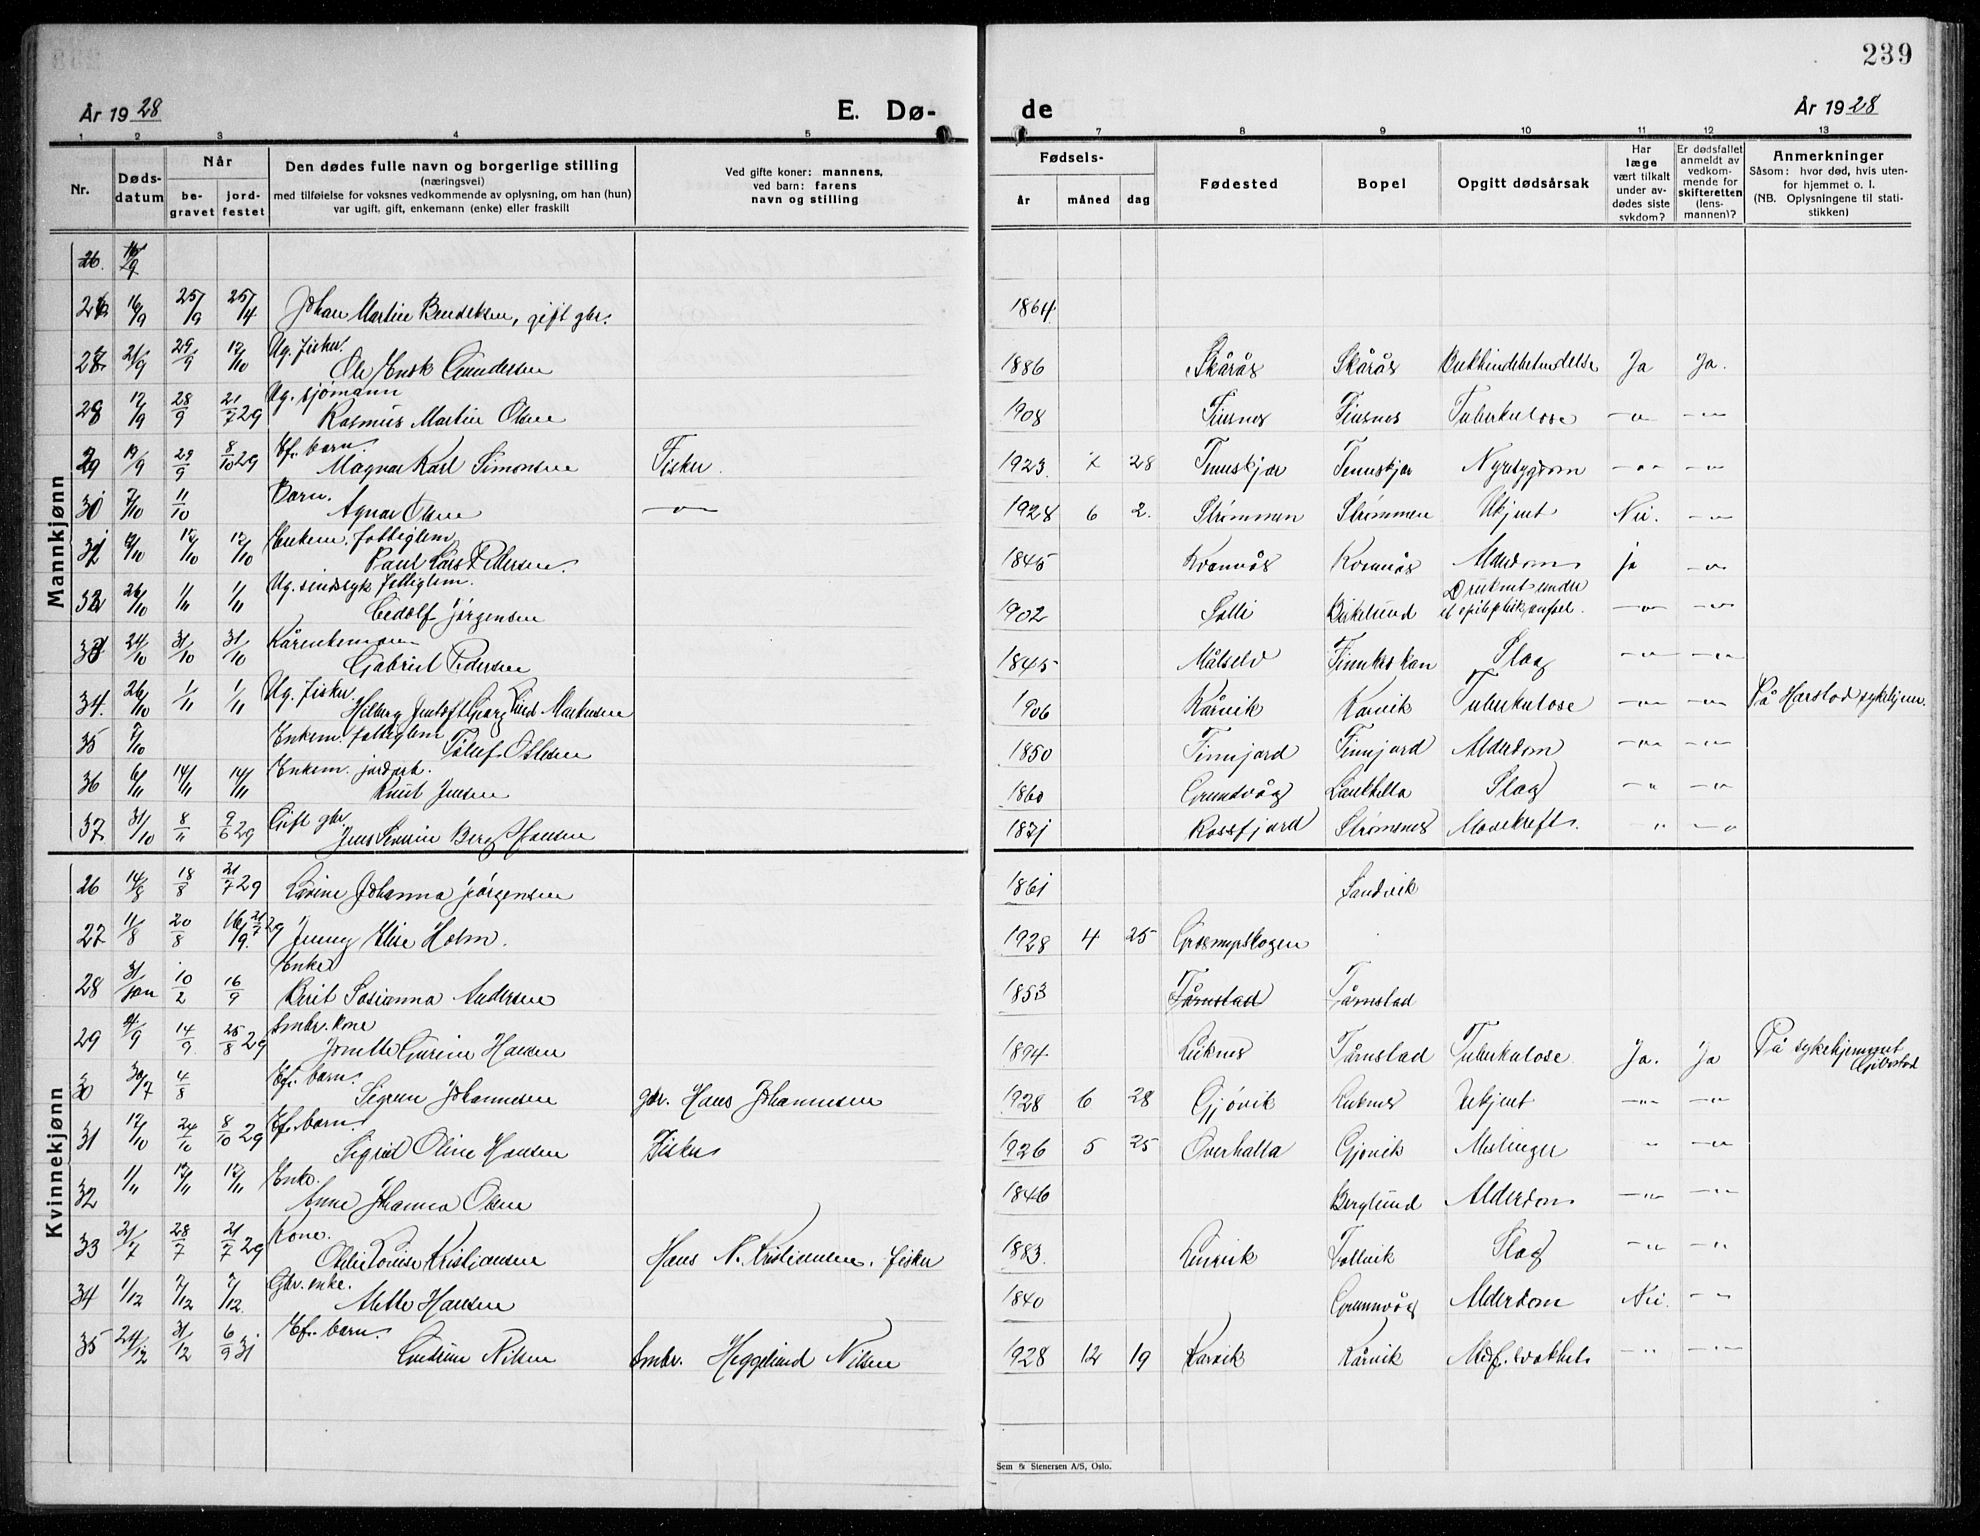 239
År 1928 E. Dø- de År 1928
1 2 3 4 5 6 7 8 9 10 11 12 13
Nr. Dødsdatum Når begravet jordfestet
Den dødes fulle navn og borgerlige stilling
(næringsvei)
med tilføielse for voksnes vedkommende av oplysning, om han (hun)
var ugift, gift, enkemann (enke) eller fraskilt
Ved gifte koner: mannens,
ved barn: farens
navn og stilling
Fødsels- år måned dag
Fødested Bopel Opgitt dødsårsak
Har læge vært tilkalt under avdødes siste sykdom?
Er dødsfallet anmeldt av vedkommende for skifteretten (lensmannen)?
Anmerkninger
Såsom: hvor død, hvis utenfor hjemmet o. l.
(NB. Oplysningene til statistikken)
Mannkjønn
26. 16/29
26 16/9 25/9 25/4 Johan Martin Bendiksen, gift gbr. 1864
27 21/9 29/9 12/10 Ug. fisker Ole Gundersen 1886 Skårås Skårås Ja Ja.
28 17/9 28/9 21/7 29 Ug. sjømann Rasmus Martin Olsen 1908 Finsnes Finsnes Tuberkulose -"- -"-
29 19/9 29/9 8/10 29 Ef. barn. Magnar Karl Simonsen Fisker. 1923 7 28 Tennskjær Tennskjær Nyresygdom -"- -"-
30 7/10 11/10 Barn. Agnar Olsen -"- 1928 6 2. Strømmen Strømmen Ukjent Nei. -"-
31 12/10 17/10 17/10 Enkem. fattiglem Paul Lars Pedersen. 1845 Kvannås Kvannås Alderdom ja -"-
32 26/10 1/11 1/11 Ug. sindssyk fattiglem. Jørgensen 1902 Solli Birkelund Druknet under et epileptisk anfal. -"- -"-
33 24/10 31/10 31/10 Kårenkemann Gabriel Pedersen 1845 Målselv Slag -"- -"-
34. 26/10 1/11 1/11 Ug. fisker Hilberg Georg Markussen 1906 Kårvik Karvik Tuberkulose -"- -"- På Harstad sykehjem.
35 7/10 Enkem. fattiglem Tollef Olsen 1850 Finnjord Finnjord Alderdom -"- -"-
36 6/11 14/11 14/11 Enkem. jordarb. Knut Jensen 1860 Grundvåg Slag -"- -"-
37 31/10 8/11 9/6 29 Gift gbr. Jens Berg Hansen Rossfjord Strømsnes Mavekreft. -"- -"-
Kvinnekjønn
26 14/8 18/8 21/7 29 Lovine Johanna Jørgensen 1861 Sandvik
27 11/8 20/8 16/9. 21/7 29 Jenny Elise Holm. 1928 4 25 Grasmyrskogen
28 31/jan 10/2 16/9 Enke Berit Sosianna Andersen 1853 Tårnstad Tårnstad
29 4/9 14/9 25/8 29 Småbr. kone Jonette Hansen 1894 Luknes Tårnstad Tuberkulose Ja. Ja På sykehjemmet Gibostad
30 30/7 4/8 Ef. barn. Sigrun Johannesen gbr. Hans Johannesen 1928 6 28 Gjøvik Luknes Ukjent -"- -"-
31 17/10 24/10 8/10 29 Ef. barn Sigrid Oline Hansen Fisker 1926 5 25 Overhalla Gjøvik Meslinger -"- -"-
32 1/11 17/11 17/11 Enke. Anne Johanna Olsen 1846 Berglund Alderdom -"- -"-
33 21/7 28/7 21/7 29 Kone. Louise Kristiansen Hans N. Kristiansen, fisker 1883. Lenvik Tollvik Slag -"- -"-
34 1/12 7/12 7/12. Gbr. enke. Mette Hansen 1840 Grunnvåg Alderdom Nei. -"-
35 24/12 31/12 6/9 31 Ef. barn. Gudrun Nilsen Småbr. Heggelund Nilsen 1928 12 19 Karvik Kårvik Medf. svakhet -"- -"-
Sem & Stenersen A/S, Oslo.